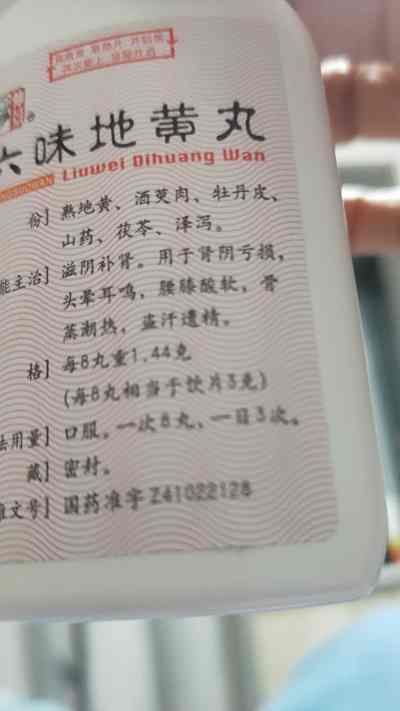 六味地黄丸
Liuwei Dihuang Wan
份] 熟地黄、酒萸肉、牡丹皮、
山药、茯苓、泽泻。
能主治] 滋阴补肾。用于肾阴亏损，
头晕耳鸣，腰膝酸软，骨
蒸潮热，盗汗遗精。
格] 每8丸重1.44克
(每8丸相当于饮片3克)
法用量] 口服。一次8丸、一日3次。
藏] 密封。
准文号] 国药准字Z41022128